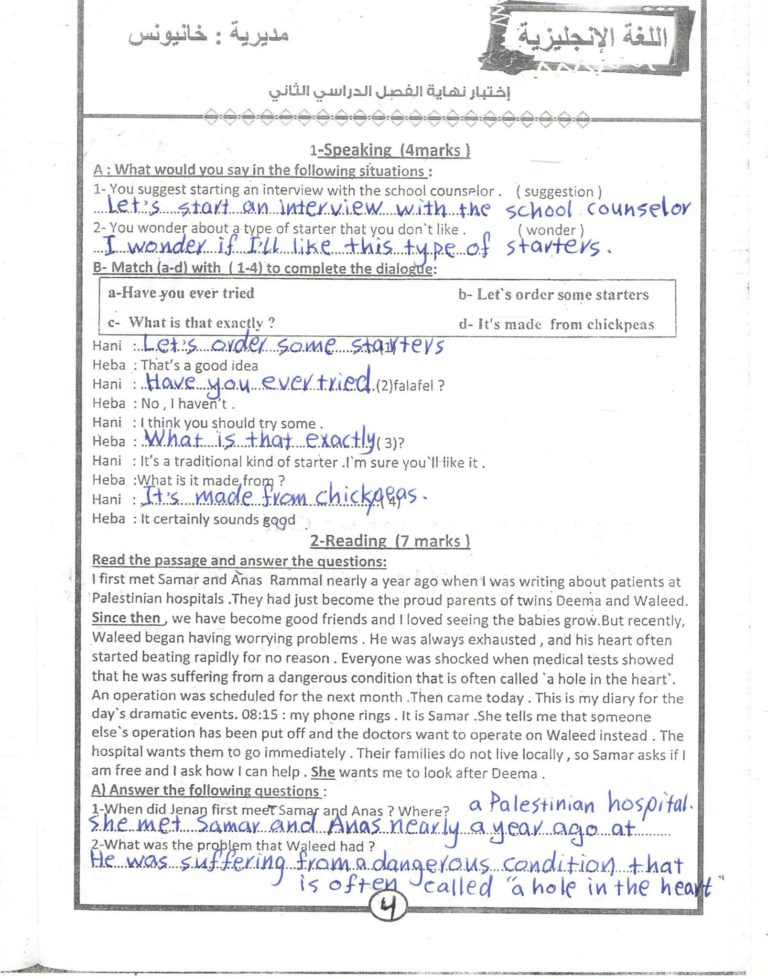 اللغة الإنجليزية
مديرية : خانيونس
إختبار نهاية الفصل الدراسي الثاني
1-Speaking (4marks )
A : What would you say in the following situations :
1- You suggest starting an interview with the school counselor . ( suggestion )
Let's start an interview with the school counselor
2- You wonder about a type of starter that you don`t like . ( wonder )
I wonder if I'll like this type of starters.
B- Match (a-d) with ( 1-4) to complete the dialogue:
a-Have you ever tried b- Let`s order some starters
c- What is that exactly ? d- It's made from chickpeas
Hani : Let's order some starters (1)
Heba : That's a good idea
Hani : Have you ever tried (2)falafel ?
Heba : No , I haven't .
Hani : I think you should try some .
Heba : What is that exactly ( 3)?
Hani : It's a traditional kind of starter .I`m sure you`ll like it .
Heba :What is it made from ?
Hani : It's made from chickpeas. (4)
Heba : It certainly sounds good
2-Reading (7 marks )
Read the passage and answer the questions:
I first met Samar and Anas Rammal nearly a year ago when I was writing about patients at
Palestinian hospitals .They had just become the proud parents of twins Deema and Waleed.
Since then , we have become good friends and I loved seeing the babies grow.But recently,
Waleed began having worrying problems . He was always exhausted , and his heart often
started beating rapidly for no reason . Everyone was shocked when medical tests showed
that he was suffering from a dangerous condition that is often called `a hole in the heart`.
An operation was scheduled for the next month .Then came today . This is my diary for the
day`s dramatic events. 08:15 : my phone rings . It is Samar .She tells me that someone
else`s operation has been put off and the doctors want to operate on Waleed instead . The
hospital wants them to go immediately . Their families do not live locally , so Samar asks if I
am free and I ask how I can help . She wants me to look after Deema .
A) Answer the following questions :
1-When did Jenan first meet Samar and Anas ? Where? a Palestinian hospital.
She met Samar and Anas nearly a year ago at
2-What was the problem that Waleed had ?
He was suffering from a dangerous condition that
is often called "a hole in the heart"
4